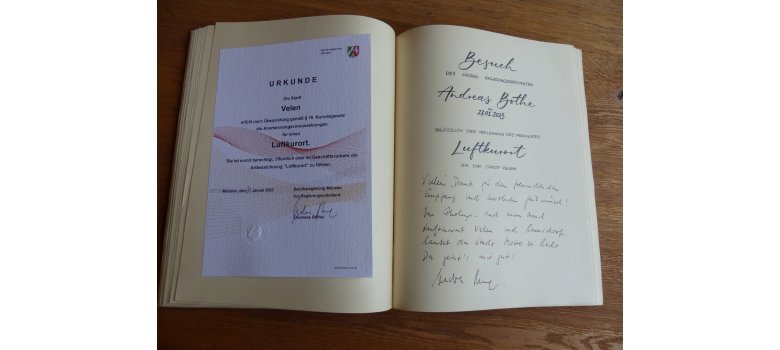 URKUNDE
Die Stadt
Velen
erfüllt nach Überprüfung gemäß § 18 Kurortegesetz
die Anerkennungsvoraussetzungen
für einen
Luftkurort.
Sie ist somit berechtigt, öffentlich oder im Geschäftsverkehr die
Artbezeichnung "Luftkurort" zu führen.
Münster, den Januar 2023
Bezirksregierung Münster
Der Regierungspräsident
(Andreas Bothe)
Besuch
DES HERRN REGIERUNGSPRÄSIDENTEN
Andreas Bothe
27.01.2023
ANLÄSSLICH DER VERLEIHUNG DES PRÄDIKATES
Luftkurort
AN DIE STADT VELEN
Vielen Dank für den freundlichen
Empfang und herzlichen Glückwunsch!
und
Velen und Ramsdorf
lautet der Stadt Motto
Da geht's mir gut!